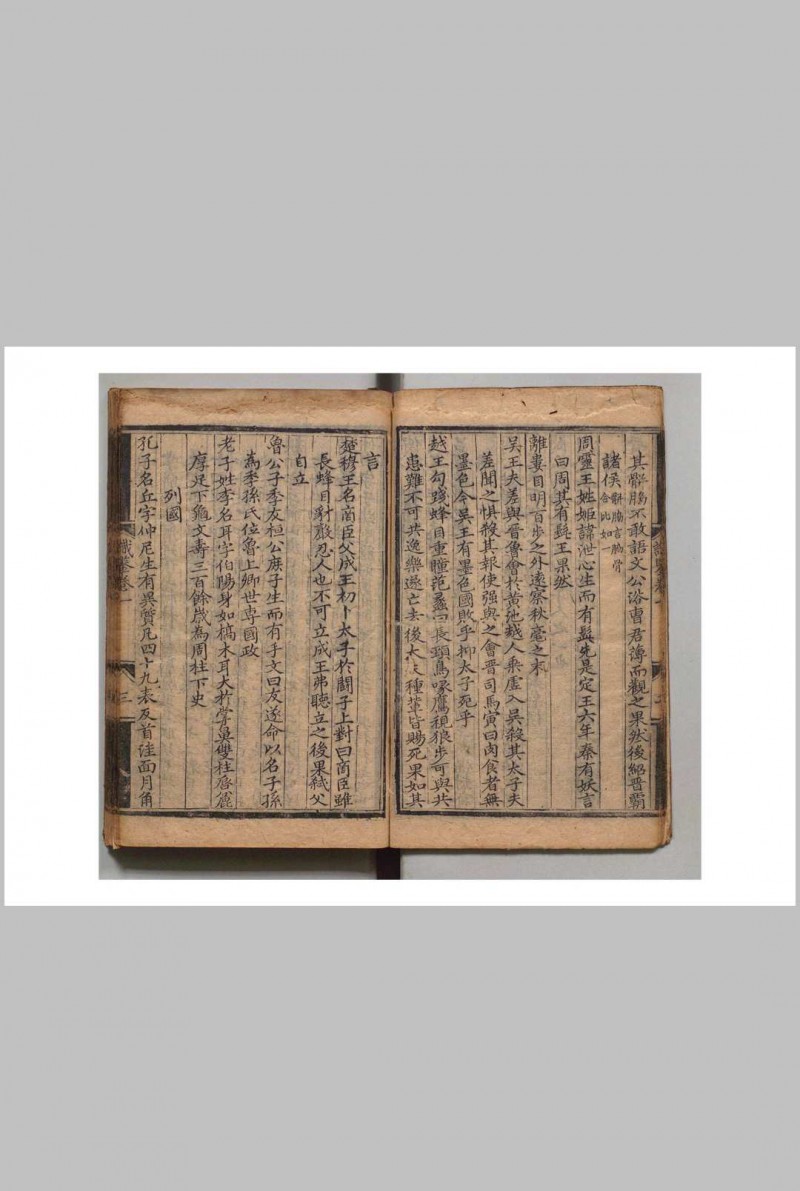 其骿脇不敢語文公浴曹君薄而觀之果然後紹晋霸
諸侯骿脇言脇骨合比如一
周靈王姓姬諱泄心生而有髭先是定王六年秦有妖言
曰周其有髭王果然
離婁目明百歩之外遠察秋毫之末
吳王夫差與晉魯會於黄池越人乘虛入吳殺其太子夫
差聞之惧殺其報使强與之會晋司馬寅曰肉食者無
墨色今吳王有墨色國敗乎抑太子死乎
越王勾踐蜂目重瞳范蠡曰長頸鳥喙鷹視狼歩可與共
患難不可共逸樂遂亡去後大夫種輩皆賜死果如其
言
楚穆王名商臣父成王初卜太子於鬭子上對曰商臣雖
長蜂目豺聲忍人也不可立成王弗聴立之後果弒父
自立
魯公子季友桓公庶子生而有手文曰友遂命以名子孫
為季孫氏位魯上卿世専國政
老子姓李名耳字伯陽身如槁木耳大拆骨鼻雙柱唇麄
厚足下龜文壽三百餘歳為周柱下史
列國
孔子名丘字仲尼生有異質凡四十九表反首洼面月角
三